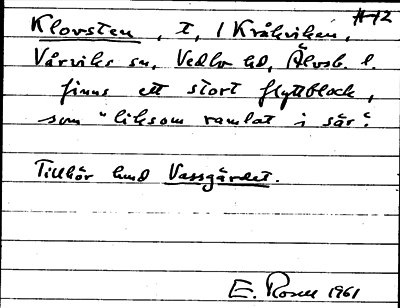 H 42
Klovsten, t, I Kråkviken,
Vårviks sn, Vedbo hd, Älvsb. l.
finns ett stort flyttblock,
som "liksom ramlat i sär".
Tillhör hmd Vassgärdet.
E. Rosell 1961